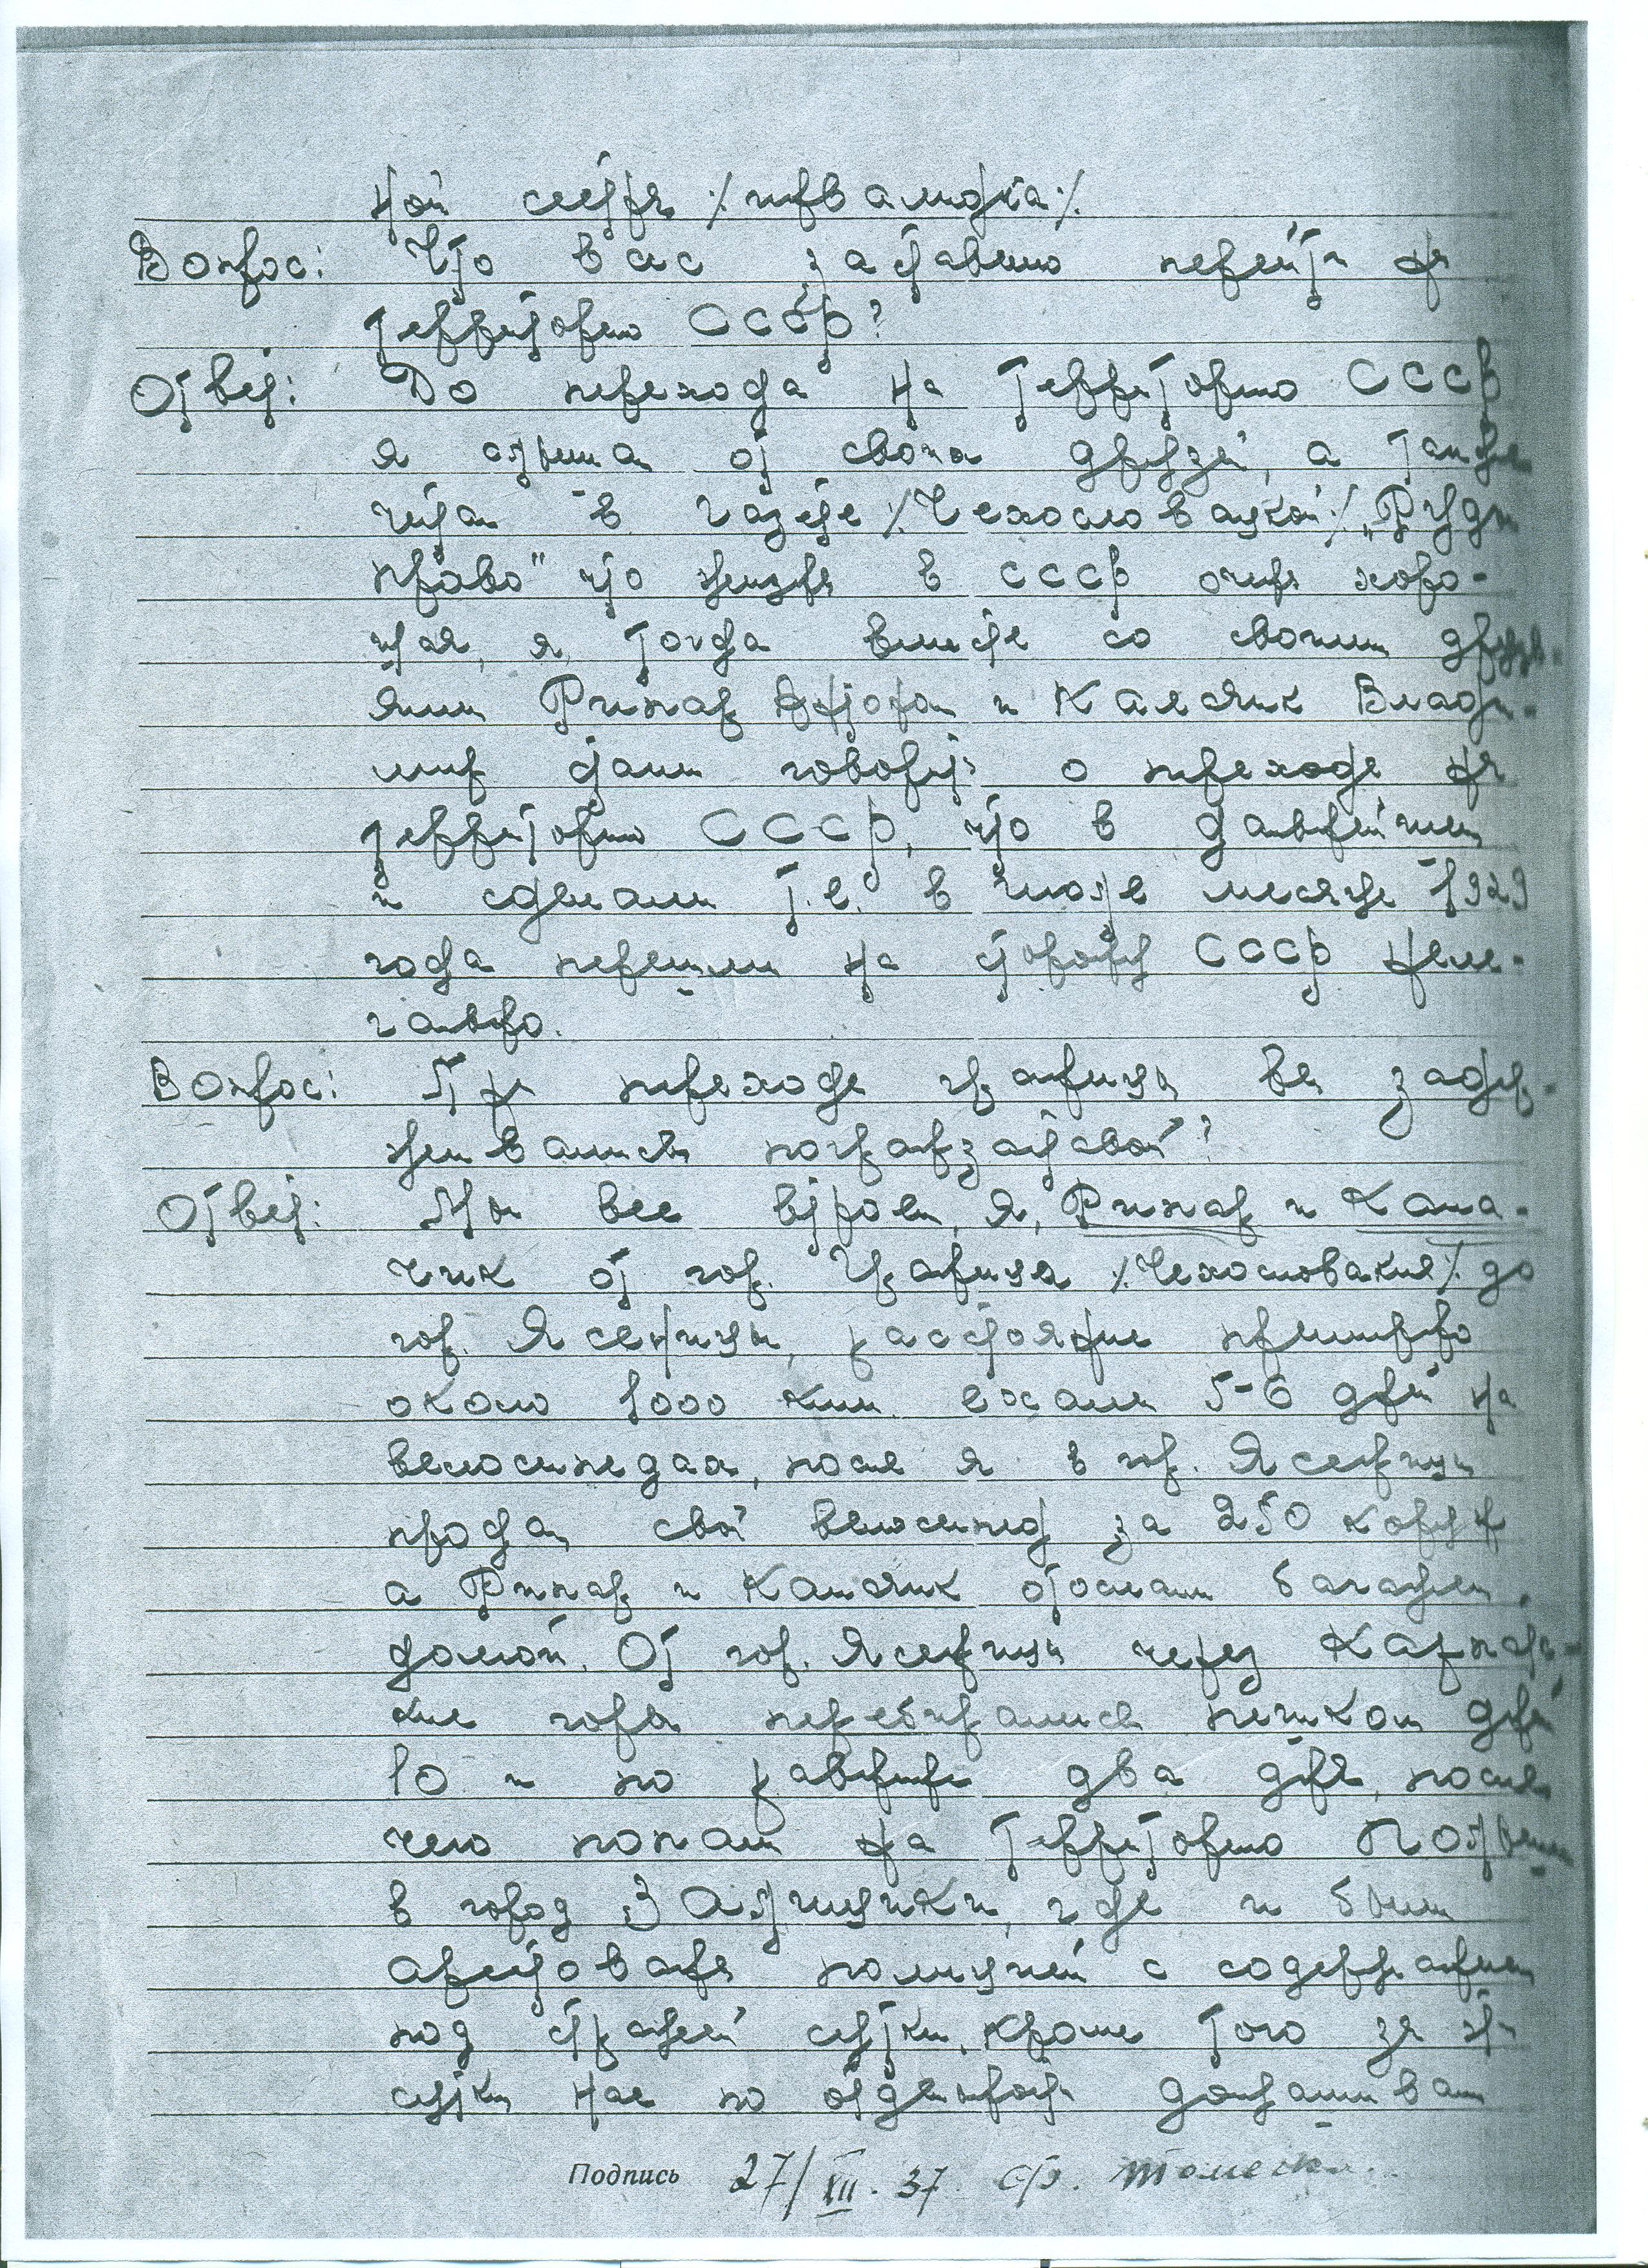 ной сестры /: инвалидка :/
Вопрос: Что вас заставило перейти на
территорию СССР?
Ответ: До перехода на территорию СССР
я слышал от своих друзей, а также
читал в газете /: Чехословацкой :/ „Руды
право" что жизнь в СССР очень хоро-
шая, я тогда вместе со своими друзь-
ями Рипар Антоном и Калачик Влади-
мир стали говорить о переходе на
территорию СССР, что в дальнейшем
и сделали т.е. в июле месяце 1929
года перешли на сторону СССР неле-
гально.
Вопрос: При переходе границы вы задер-
живались погранзаставой?
Ответ: Мы все втроем, я, Рипар и Кала-
чик от гор. /: Чехословакия :/ до
гор. Ясеницы, расстояние примерно
около 1000 клм. ехали 5-6 дней на
велосипедах, после я в гор. Ясеницы
продал свой велосипед за 250 корун
а Рипар и Калачик отослали багажем
домой. От гор. Ясеницы через Карпатс-
кие горы перебирались пешком дней
10 и по равнине два дня, после
чего попали на территорию Польши
в город где и были
арестованы полицией с содержанием
под стражей сутки, кроме того за эти
сутки нас по отдельности допрашивали
Подпись 27/XII. 37.